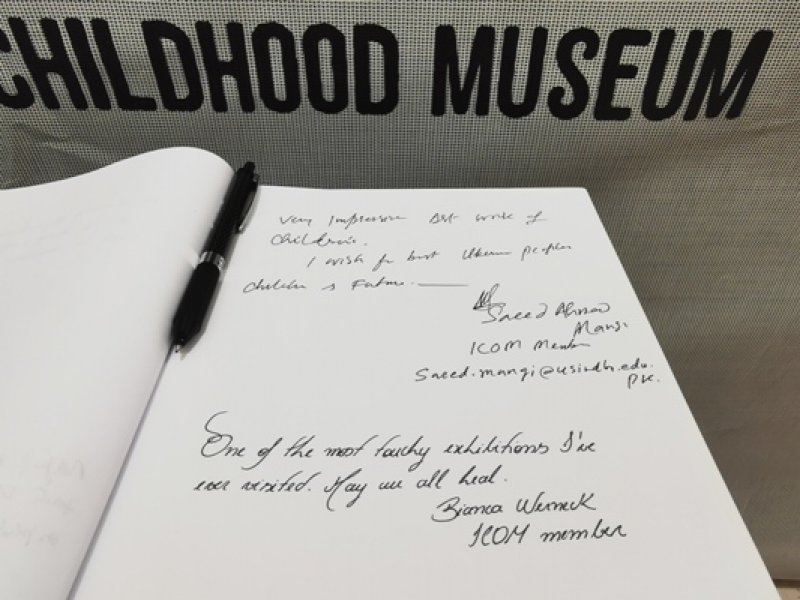 CHILDHOOD MUSEUM
Very Impressive Art work of
children's.
I wish for best people
children s Future.
Saeed Ahmad
Mangi
ICOM Member
Saeed.mangi@usindh.edu.
pk.
One of the most touchy exhibitions I've
ever visited. May we all heal.
Bianca Werneck
ICOM member